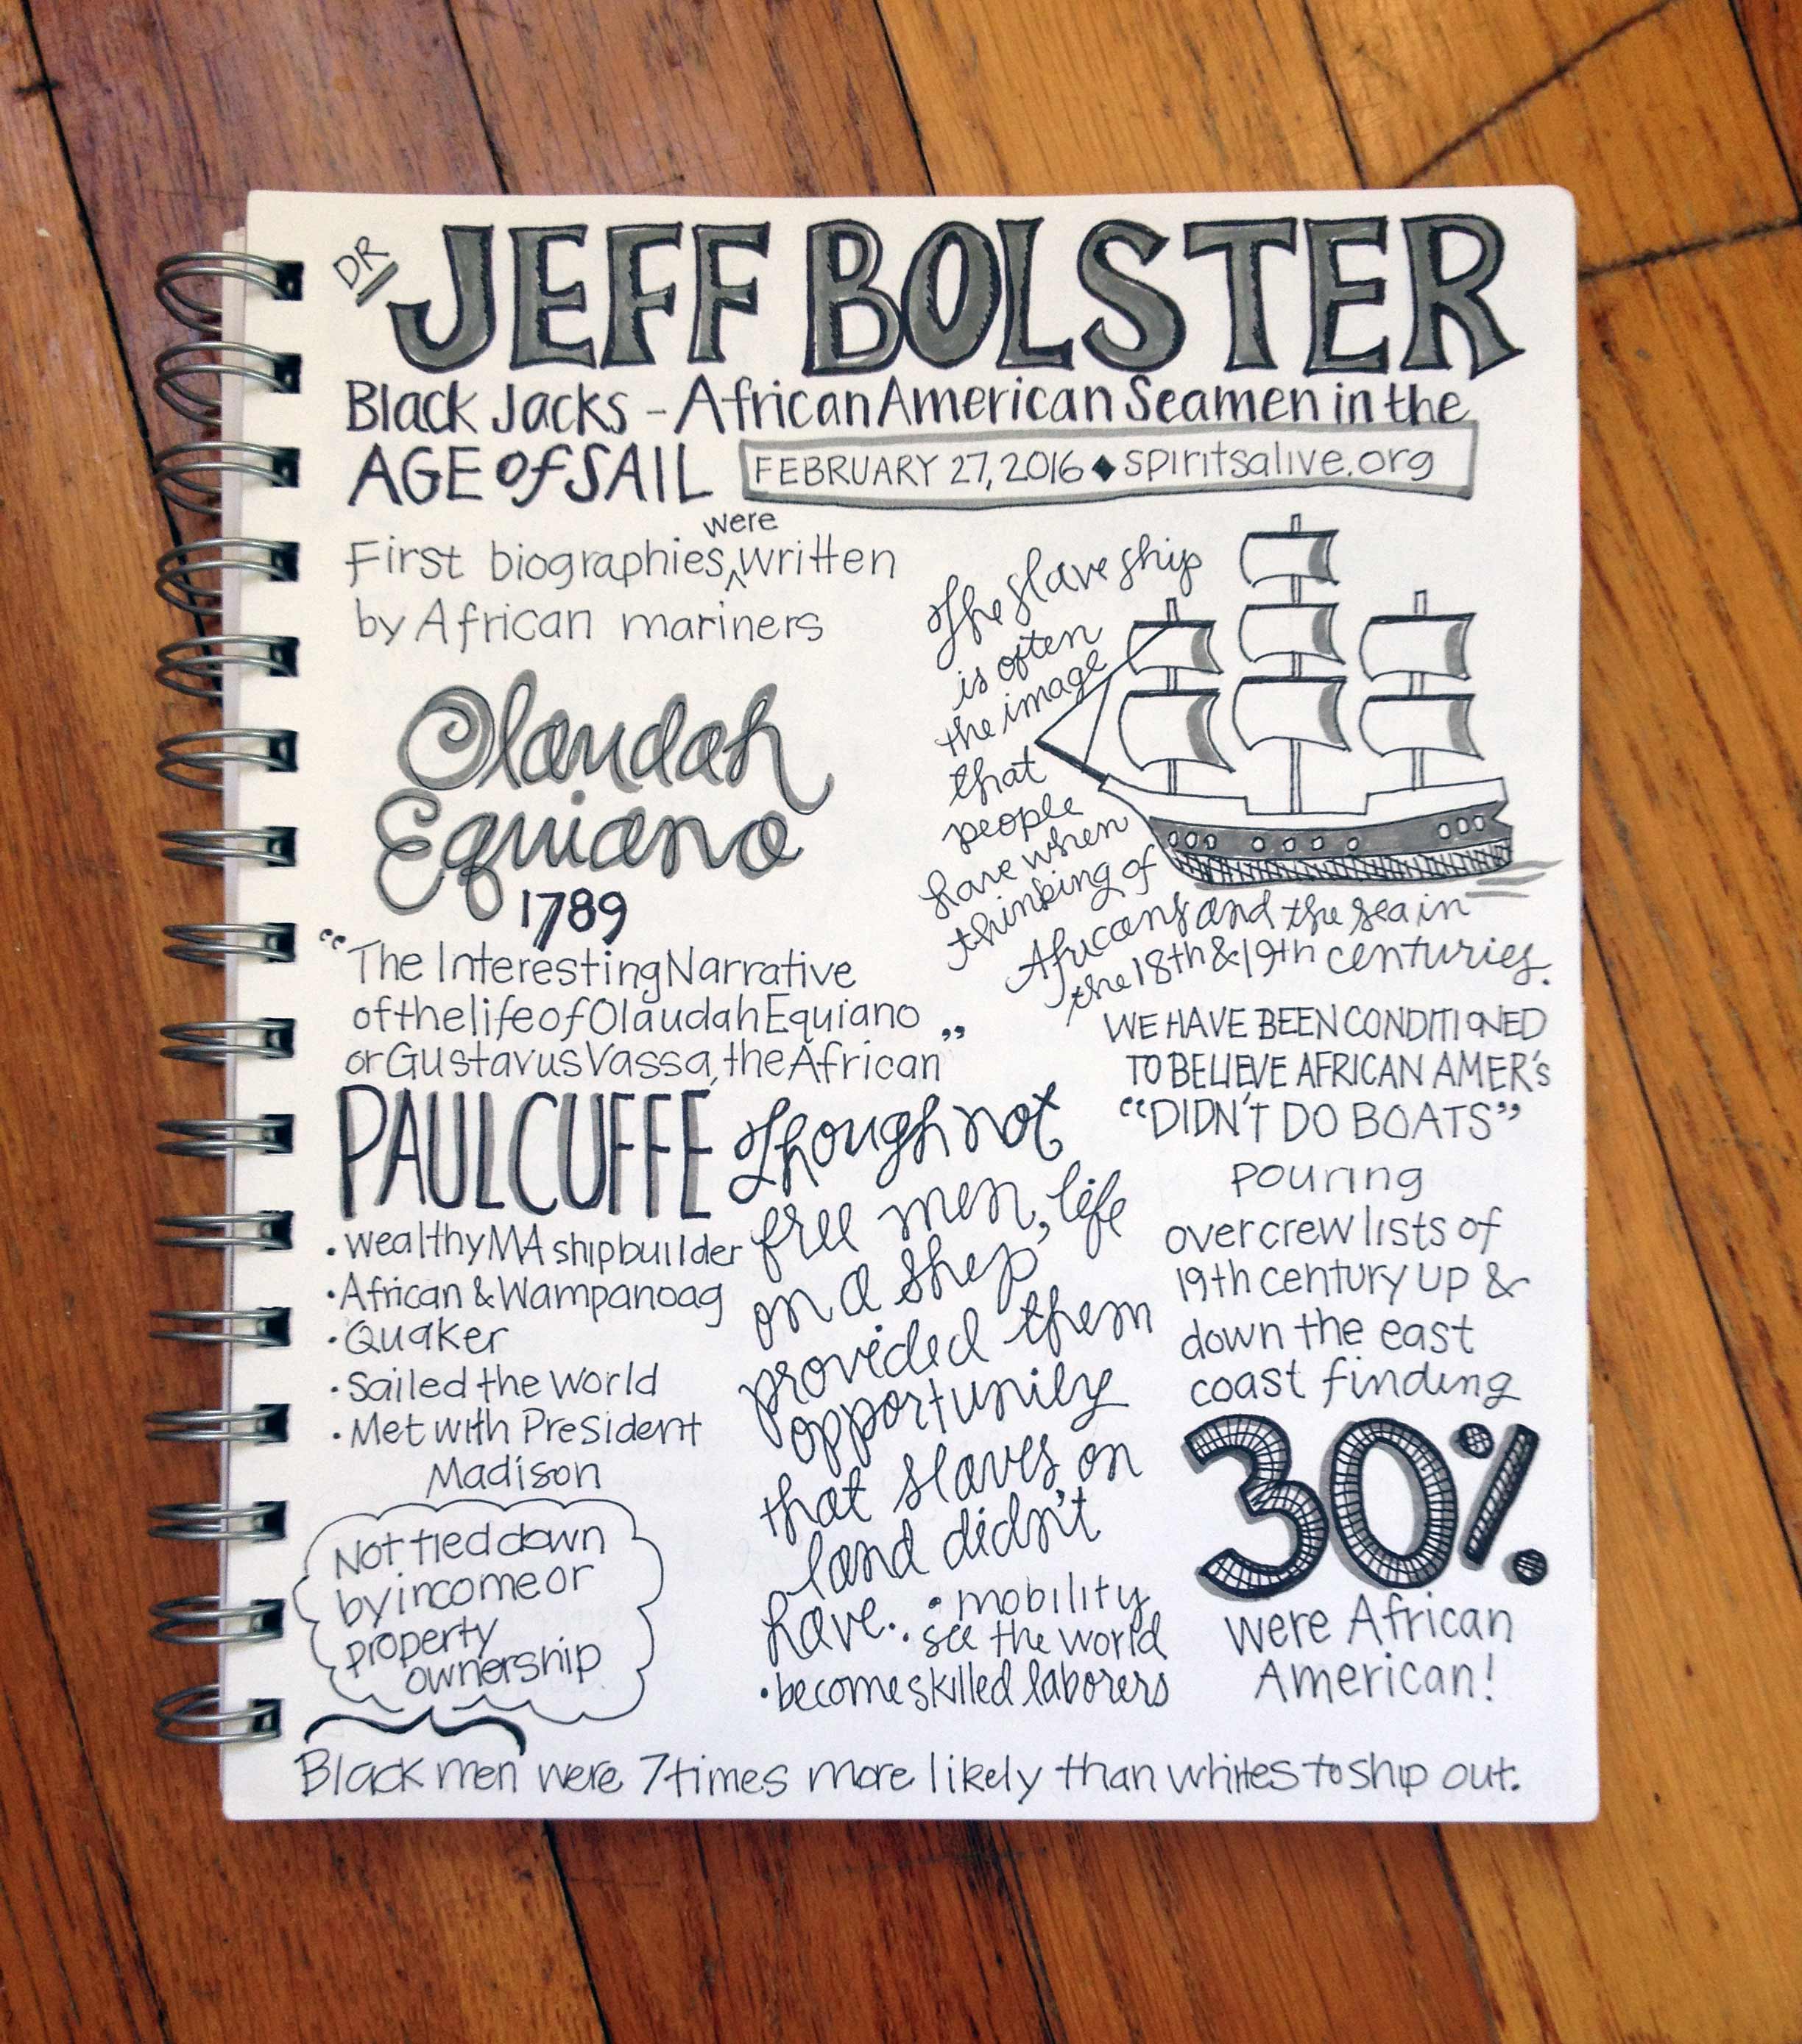 DR JEFF BOLSTER
Black Jacks - African American Seamen in the
AGE of SAIL
FEBRUARY 27, 2016 ◆ spiritsalive.org
were
First biographies ^ written
by African mariners
Olaudah
Equiano
1789
"The Interesting Narrative
of the life of Olaudah Equiano
or Gustavus Vassa, the African"
The slave ship
is often
the image
that
people
have when
thinking of
Africans and the sea in
the 18th & 19th centuries.
WE HAVE BEEN CONDITIONED
TO BELIEVE AFRICAN AMER'S
"DIDN'T DO BOATS"
PAUL CUFFE
• wealthy MA shipbuilder
• African & Wampanoag
• Quaker
• Sailed the world
• Met with President
Madison
Not tied down
by income or
property
ownership
Though not
free men, life
on a ship
provided them
opportunity
that slaves on
land didn't
have.
• mobility
• see the world
• become skilled laborers
pouring
over crew lists of
19th century up &
down the east
coast finding
30%
were African
American!
Black men were 7 times more likely than whites to ship out.